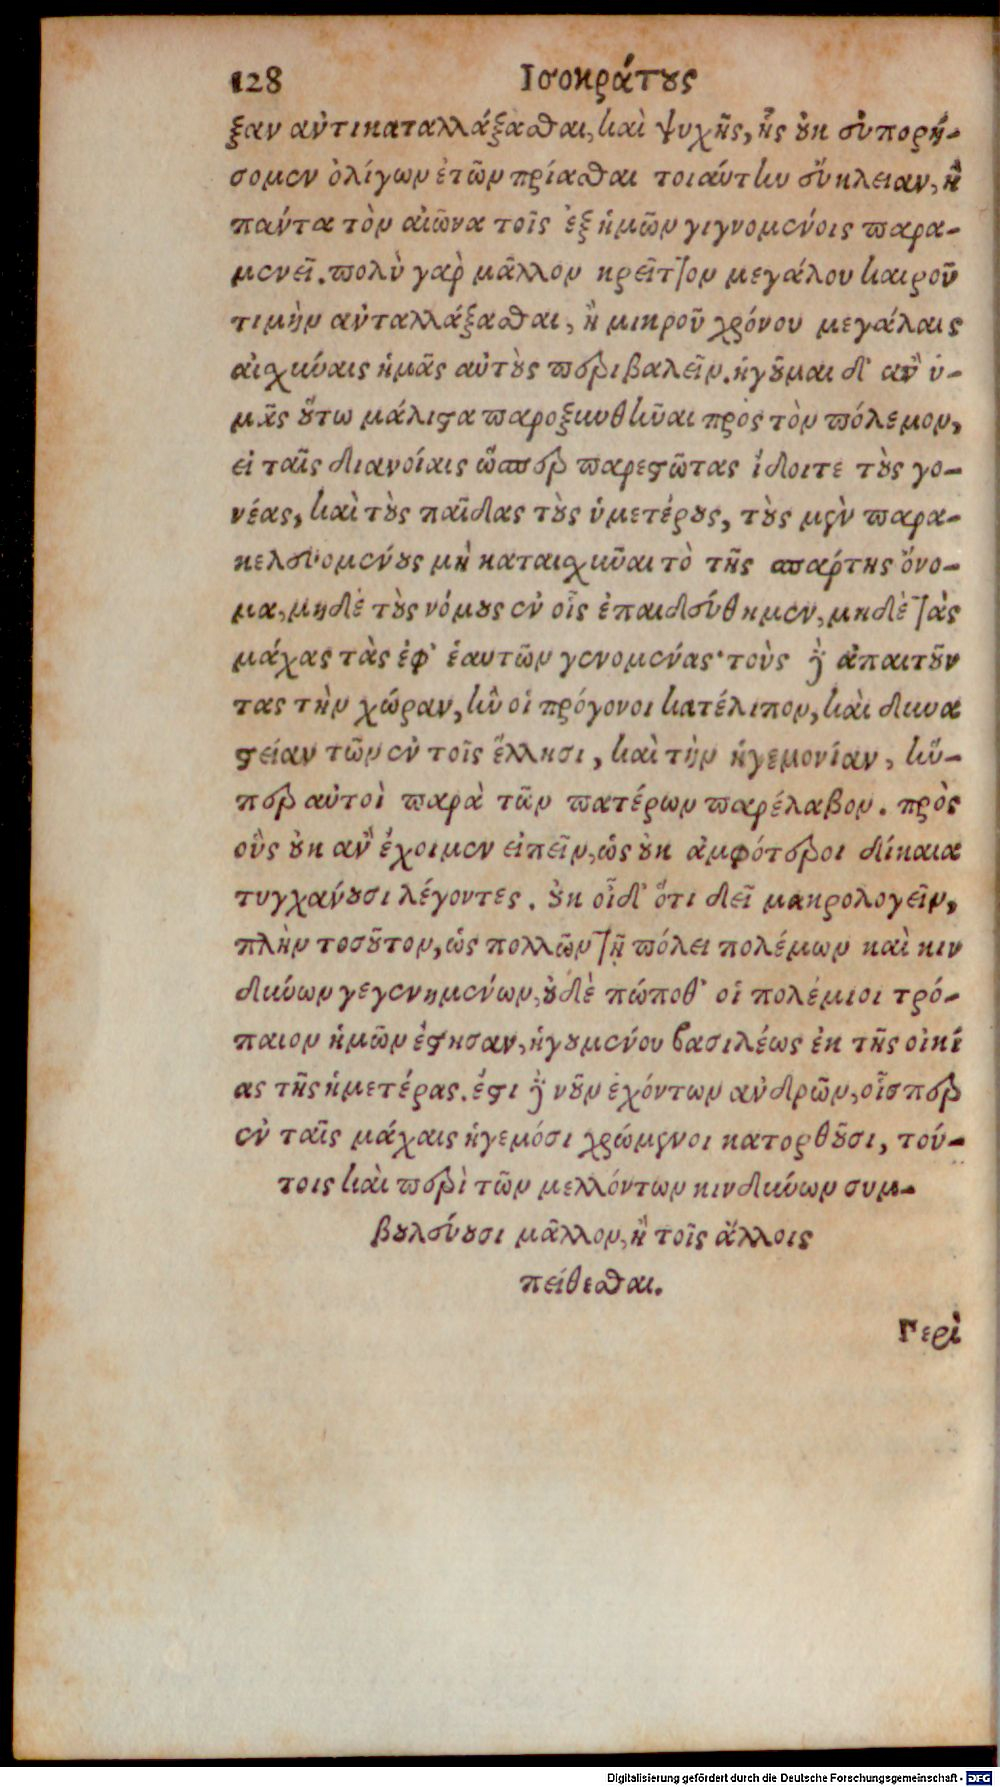 128 Ισοκράτους
ξαν ἀντικαταλλάξασθαι, καὶ ψυχῆς, ἧς οὐκ εὐπορή-
σομεν ὀλίγων ἐτῶν πρίασθαι τοιαύτην εὔκλειαν, ἢ
πάντα τὸν αἰῶνα τοῖς ἐξ ἡμῶν γιγνομένοις παρα-
μενεῖ. πολὺ γὰρ μᾶλλον κρεῖττον μεγάλου καιροῦ
τιμὴν ἀνταλλάξασθαι, ἢ μικροῦ χρόνου μεγάλαις
αἰσχύναις ἡμᾶς αὐτοὺς περιβαλεῖν. ἡγοῦμαι δ' ἂν ὑ-
μᾶς οὕτω μάλιστα παροξυνθῆναι πρὸς τὸν πόλεμον,
εἰ ταῖς διανοίαις ὥσπερ παρεστῶτας ἴδοιτε τοὺς γο-
νέας, καὶ τοὺς παῖδας τοὺς ὑμετέρους, τοὺς μὲν παρα-
κελευομένους μὴ καταισχῦναι τὸ τῆς σπάρτης ὄνο-
μα, μηδὲ τοὺς νόμους ἐν οἷς ἐπαιδεύθημεν, μηδὲ τὰς
μάχας τὰς ἐφ' ἑαυτῶν γενομένας· τοὺς δὲ ἀπαιτοῦν
τας τὴν χώραν, ἣν οἱ πρόγονοι κατέλιπον, καὶ δυνα
στείαν τῶν ἐν τοῖς ἕλλησι, καὶ τὴν ἡγεμονίαν, ἥν-
περ αὐτοὶ παρὰ τῶν πατέρων παρέλαβον. πρὸς
οὓς οὐκ ἂν ἔχοιμεν εἰπεῖν, ὡς οὐκ ἀμφότεροι δίκαια
τυγχάνουσι λέγοντες. οὐκ οἶδ' ὅτι δεῖ μακρολογεῖν,
πλὴν τοσοῦτον, ὡς πολλῶν τῇ πόλει πολέμων καὶ κιν
δύνων γεγενημένων, οὐδὲ πώποθ' οἱ πολέμιοι τρό-
παιον ἡμῶν ἔστησαν, ἡγουμένου βασιλέως ἐκ τῆς οἰκί
ας τῆς ἡμετέρας. ἔστι δὲ νοῦν ἐχόντων ἀνδρῶν, οἷσπερ
ἐν ταῖς μάχαις ἡγεμόσι χρώμενοι κατορθοῦσι, τού-
τοις καὶ περὶ τῶν μελλόντων κινδύνων συμ-
βουλεύουσι μᾶλλον, ἢ τοῖς ἄλλοις
πείθεσθαι.
Περὶ
Digitalisierung gefördert durch die Deutsche Forschungsgemeinschaft - DFG